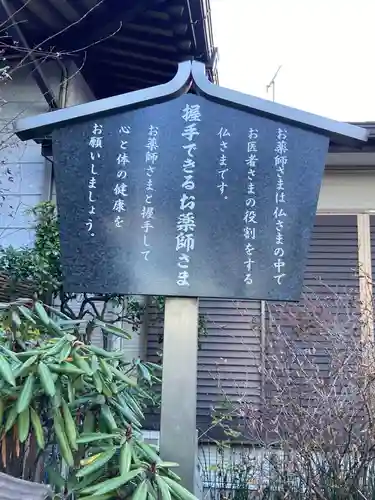 お薬師さまは仏さまの中で
お医者さまの役割をする
仏さまです。
握手できるお薬師さま
お薬師さまと握手して
心と体の健康を
お願いしましょう。